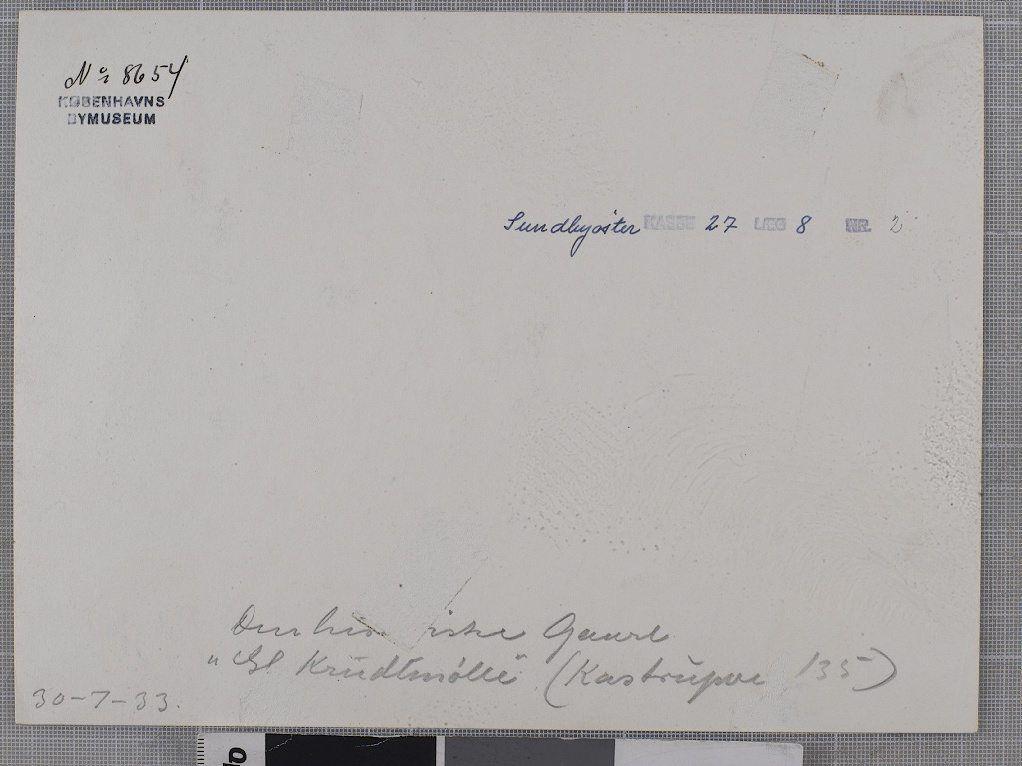 Nr 8654
KØBENHAVNS
BYMUSEUM
Sundbyøster KASSE 27 LÆG 8 NR. 2
Den his riske Gaard
"Gl Krudtmølle" (Kastrupve 135)
30-7-33.